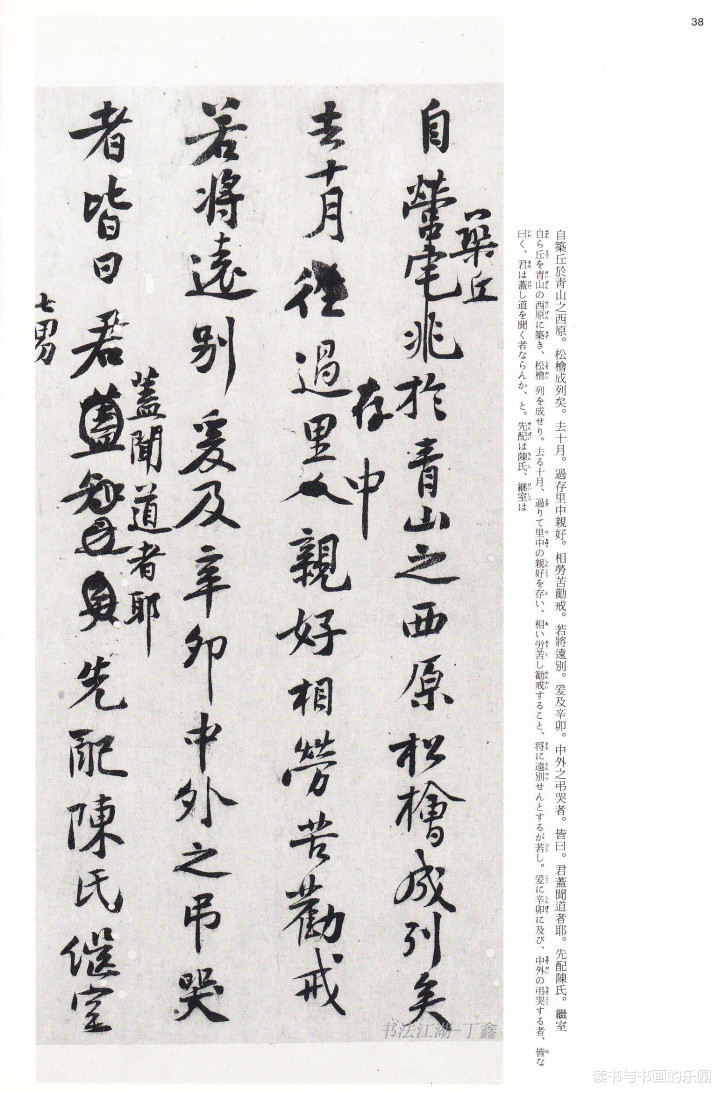 38
自築丘於青山之西原。松檜成列矣。去十月。過存里中親好。相勞苦勸戒。若將遠別。爰及辛卯。中外之弔哭者。皆曰。君蓋聞道者耶。先配陳氏。繼室
自ら丘を青山の西原に築き、松檜 列を成せり。去る十月、過りて里中の親好を存い、相い労苦し勧戒すること、将に遠別せんとするが若し。爰に辛卯に及び、中外の弔哭する者、皆な
曰く、君は蓋し道を聞く者ならんか、と。先配は陳氏、継室は
築丘
自營宅兆於青山之西原松檜成列矣
存中
去十月 過里人親好相勞苦勸戒
若將遠別爰及辛卯中外之弔哭
蓋聞道者耶
者皆曰君 先配陳氏繼室
七男
书法江湖-丁鑫
读书与书画的乐园